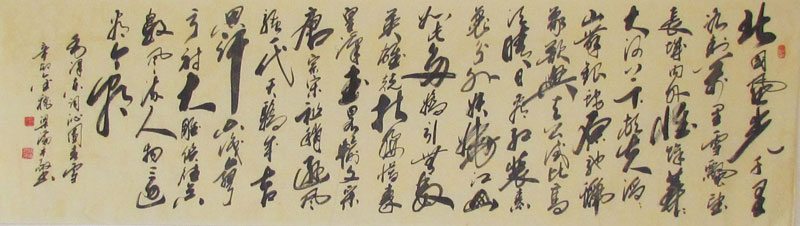 北國風光千里
冰封萬里雪飄望
長城內外惟餘莽莽
大河上下頓失滔滔
山舞銀蛇原馳蠟
象欲與天公試比高
須晴日看紅裝素
裹分外妖嬈江山
如此多嬌引無數
英雄競折腰惜秦
皇漢武略輸文采
唐宗宋祖稍遜風
騷一代天驕成吉
思汗只識彎
弓射大雕俱往矣
數風流人物還
看今朝
毛澤東詞沁園春雪